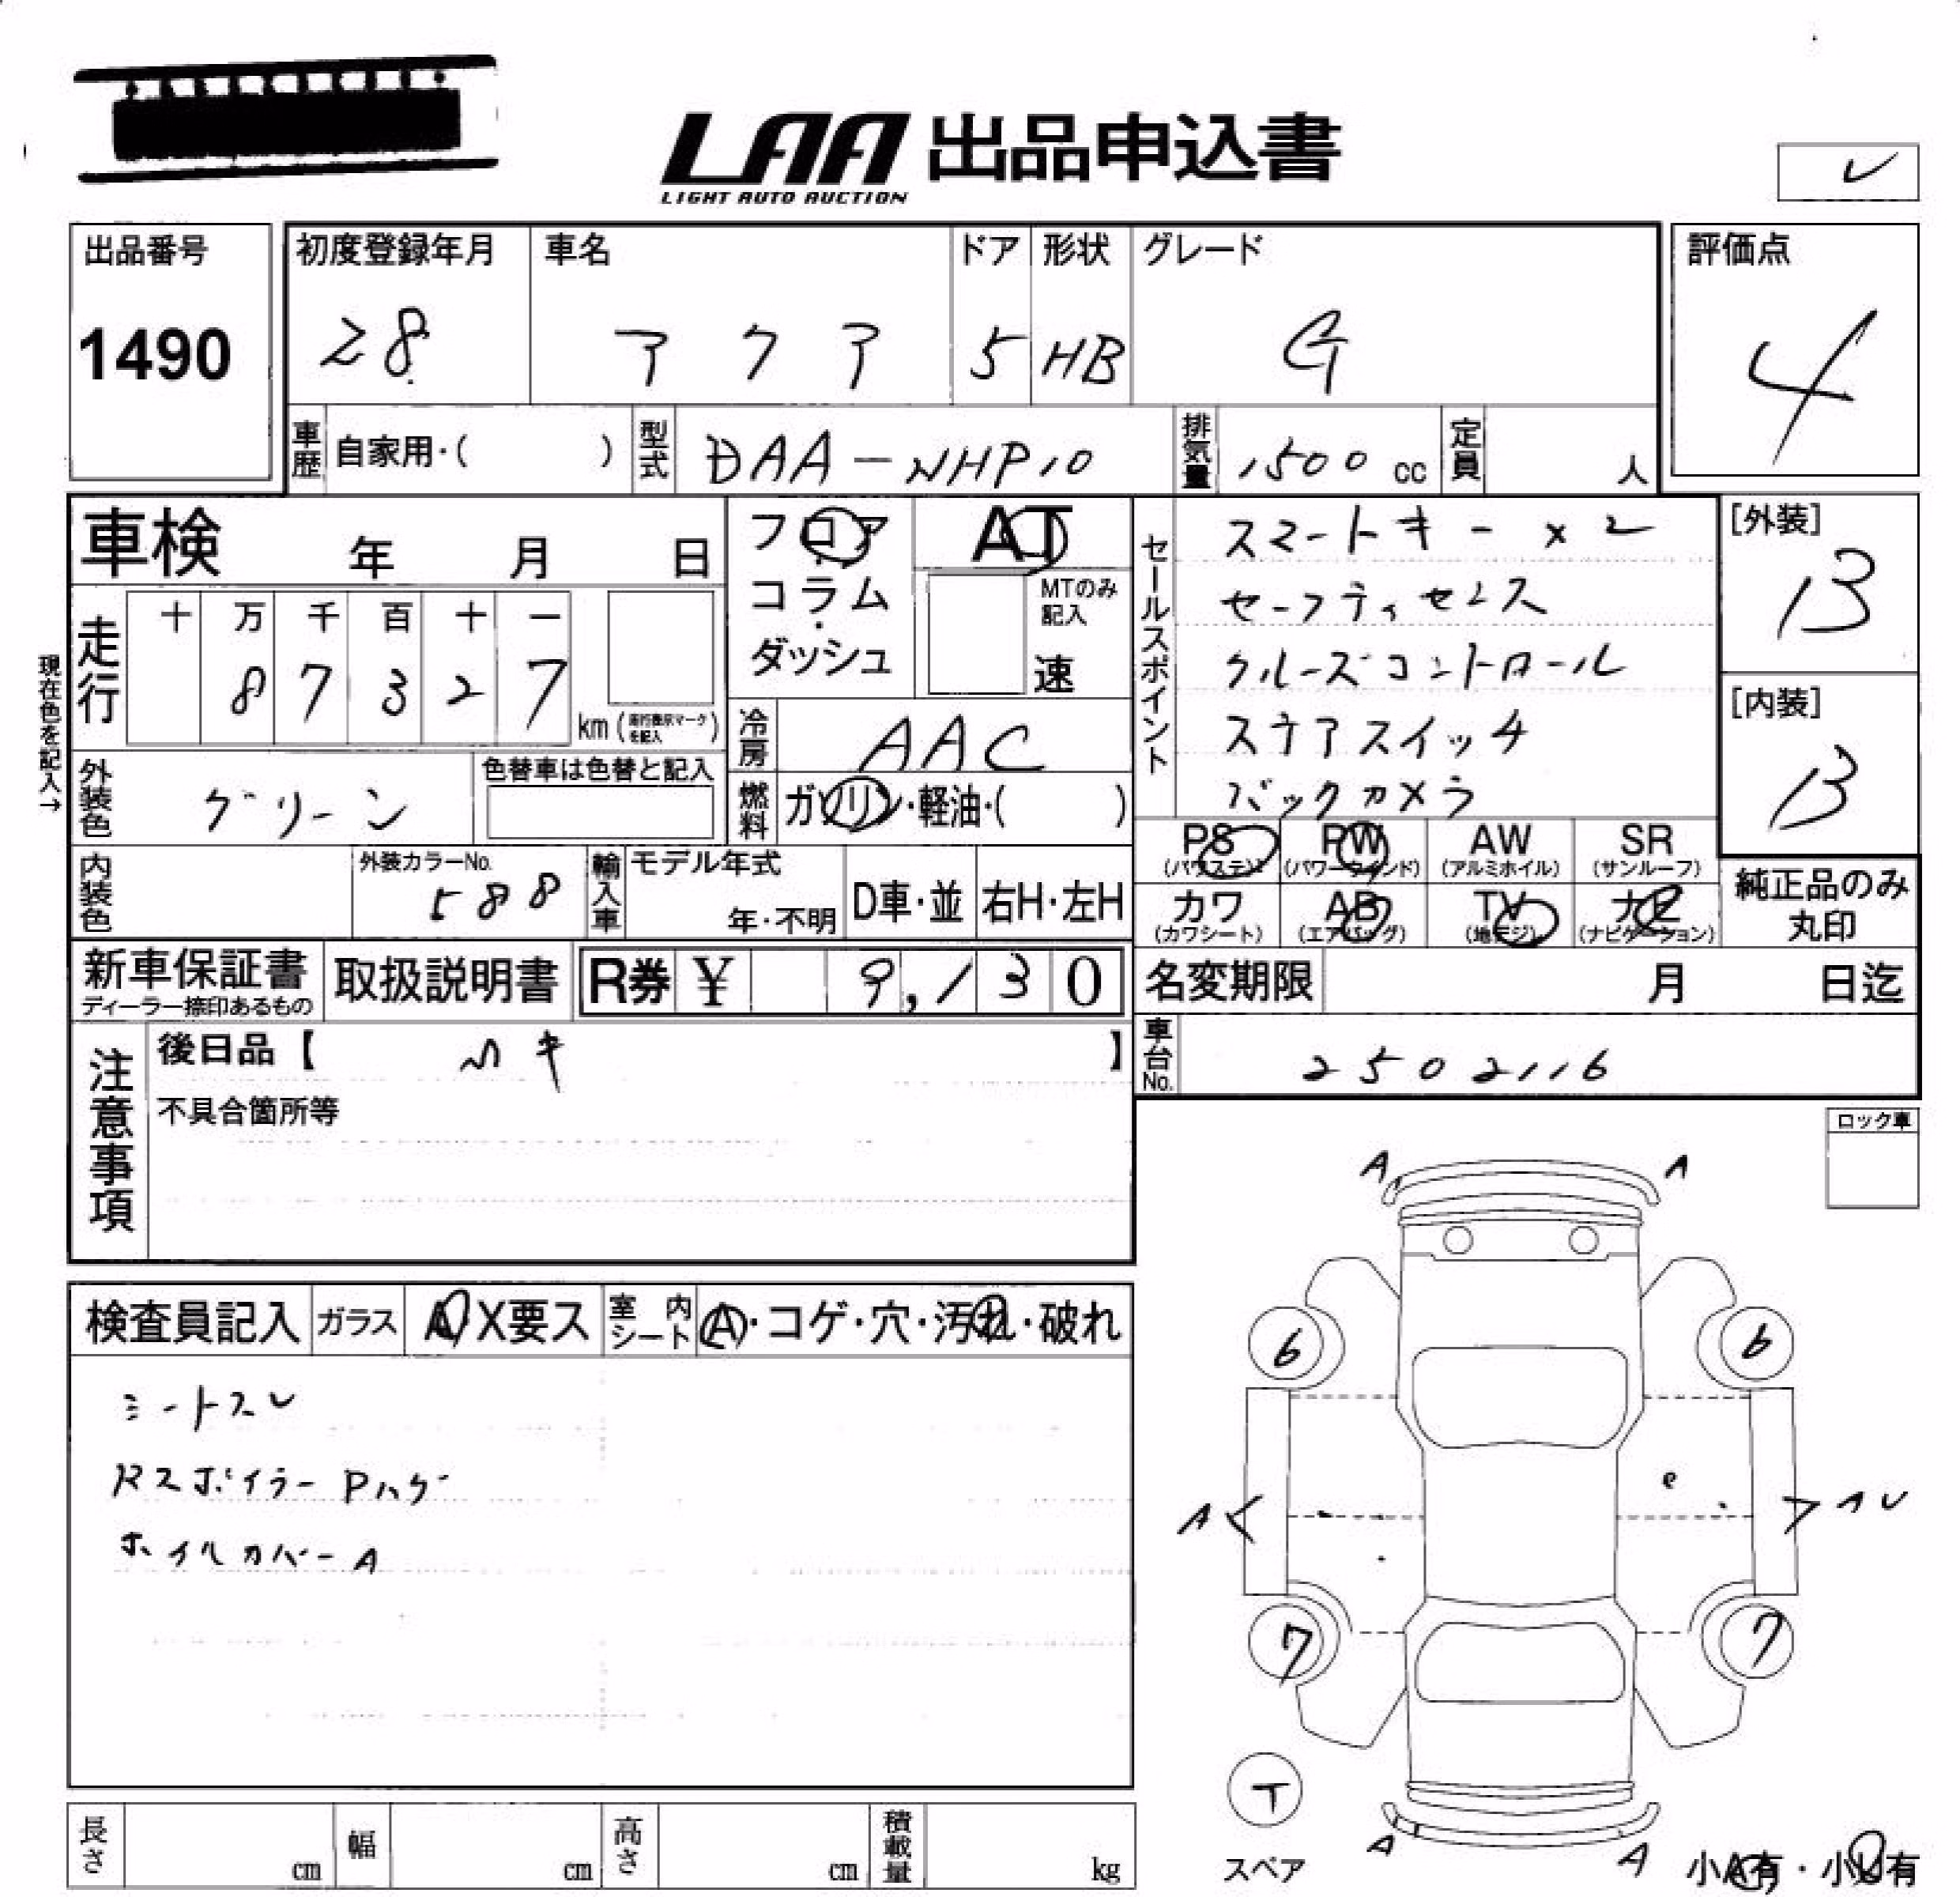 LAA 出品申込書
LIGHT AUTO AUCTION
レ
出品番号 初度登録年月 車名 ドア 形状 グレード 評価点
1490 28 アクア 5 HB G 4
車歴 自家用・( ) 型式 DAA-NHP10 排気量 1500 cc 定員 人
車検 年 月 日
フロア
コラム
ダッシュ
AT
MTのみ記入
速
セールスポイント
スマートキー×2
セーフティセンス
クルーズコントロール
ステアスイッチ
バックカメラ
[外装]
B
[内装]
B
現在色を記入→
走行 十 万 千 百 十 一
8 7 3 2 7 km (走行表示マークを記入)
冷房 AAC
外装色 グリーン 色替車は色替と記入
燃料 ガソリン・軽油・( )
内装色 外装カラーNo. 588 輸入車 モデル年式 年・不明 D車・並 右H・左H
PS PW AW SR
(パワステ) (パワーウインド) (アルミホイル) (サンルーフ)
カワ AB TV ナビ
(カワシート) (エアバッグ) (地デジ) (ナビゲーション)
純正品のみ
丸印
新車保証書 取扱説明書 R券 ¥ 9,130
ディーラー捺印あるもの
名変期限 月 日迄
車台No. 2502116
注意事項
後日品【 】
不具合箇所等
ロック車
検査員記入 ガラス A X要ス 室内シート A・コゲ・穴・汚れ・破れ
シートスレ
RスポイラーPハゲ
ホイルカバーA
A A
6 6
A A U
e
7 7
T
スペア
A A
小A有・小U有
長さ cm 幅 cm 高さ cm 積載量 kg